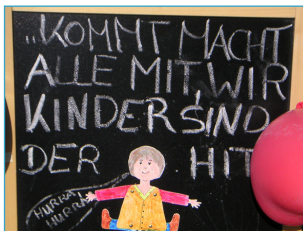 „KOMMT MACHT
ALLE MIT, WIR
KINDER SIND
DER HIT
HURRA
HURRA